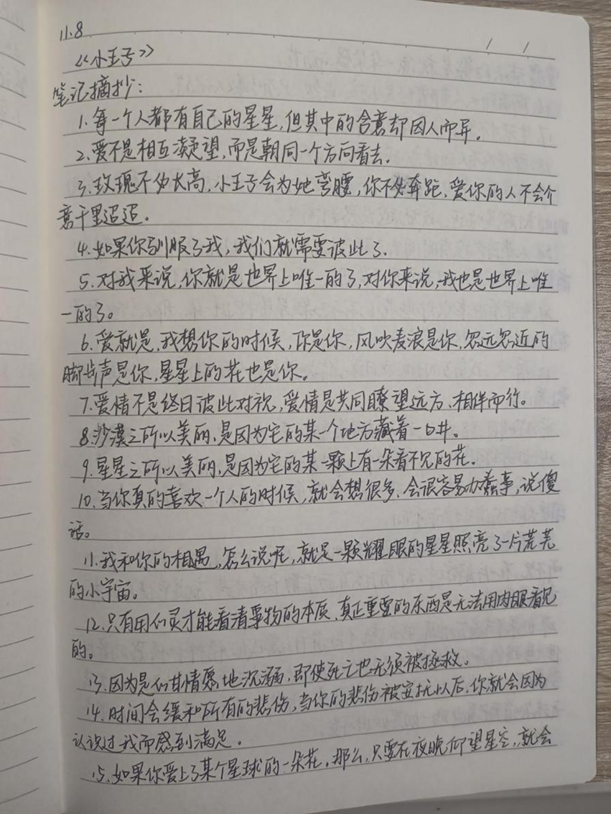 11.8
《小王子》
笔记摘抄：
1.每一个人都有自己的星星，但其中的含意却因人而异。
2.爱不是相互凝望，而是朝同一个方向看去。
3.玫瑰不必长高，小王子会为她弯腰，你不必奔跑，爱你的人不会介
意千里迢迢。
4.如果你驯服了我，我们就需要彼此了.
5.对我来说，你就是世界上唯一的了，对你来说，我也是世界上唯
一的了。
6.爱就是，我想你的时候，你是你，风吹麦浪是你，忽远忽近的
脚步声是你，星星上的花也是你。
7.爱情不是终日彼此对视，爱情是共同瞭望远方，相伴而行。
8.沙漠之所以美丽，是因为它的某个地方藏着一口井。
9.星星之所以美丽，是因为它的某一颗上有一朵看不见的花。
10.当你真的喜欢一个人的时候，就会想很多，会很容易办蠢事，说傻
话。
11.我和你的相遇，怎么说呢，就是一颗耀眼的星星照亮了一片荒芜
的小宇宙。
12.只有用心灵才能看清事物的本质，真正重要的东西是无法用肉眼看见
的。
13.因为是心甘情愿地沉溺，即使死亡也无须被拯救。
14.时间会缓和所有的悲伤，当你的悲伤被安抚以后，你就会因为
认识过我而感到满足。
15.如果你爱上了某个星球的一朵花，那么，只要在夜晚仰望星空，就会